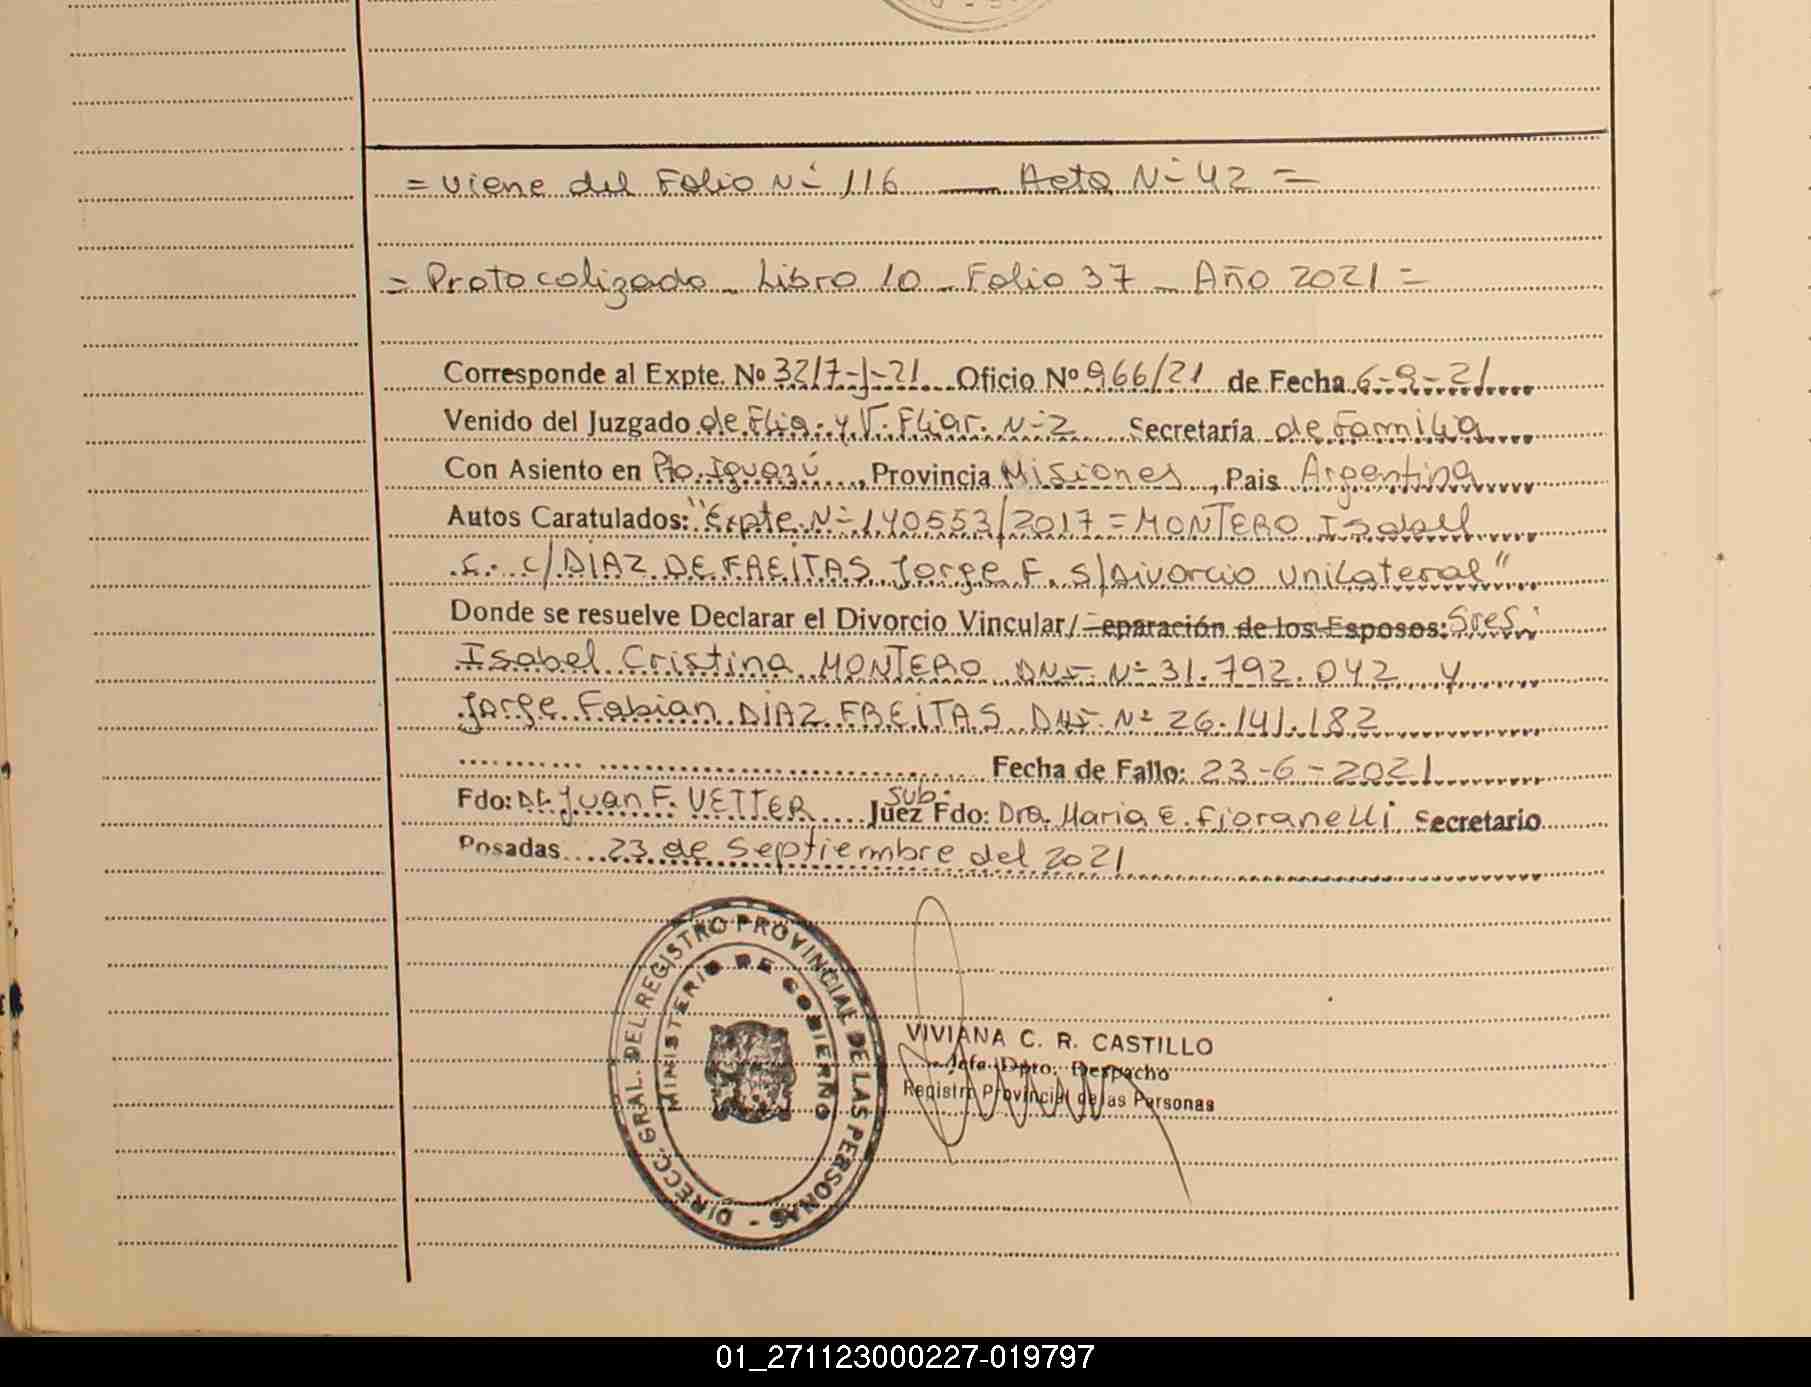 = Viene del Folio N° 116 — Acta N° 42 =
= Protocolizado - Libro 10 - Folio 37 - Año 2021 =
Corresponde al Expte. Nº 3217-J-21 Oficio Nº 966/21 de Fecha 6-9-21
Venido del Juzgado de Flia. y V. Fliar. N° 2 Secretaría de Familia
Con Asiento en Pto. Iguazú, Provincia Misiones, Pais Argentina
Autos Caratulados: "Expte. N° 140553/2017 = MONTERO Isabel
C. c/ DIAZ DE FREITAS Jorge F. s/Divorcio Unilateral"
Donde se resuelve Declarar el Divorcio Vincular/ eparación de los Esposos: Sres.
Isabel Cristina MONTERO DNI. N° 31.792.042 y
Jorge Fabian DIAZ FREITAS DNI. N° 26.141.182
Fecha de Fallo: 23-6-2021
Fdo: Dr. Juan F. VETTER Juez Fdo: Dra. Maria E. Fioranelli Sub. Secretario
Posadas 23 de Septiembre del 2021
DIRECC. GRAL. DEL REGISTRO PROVINCIAL DE LAS PERSONAS -
MINISTERIO DE GOBIERNO
VIVIANA C. R. CASTILLO
Jefa Dpto. Despacho
Registro Provincial de las Personas
01_271123000227-019797